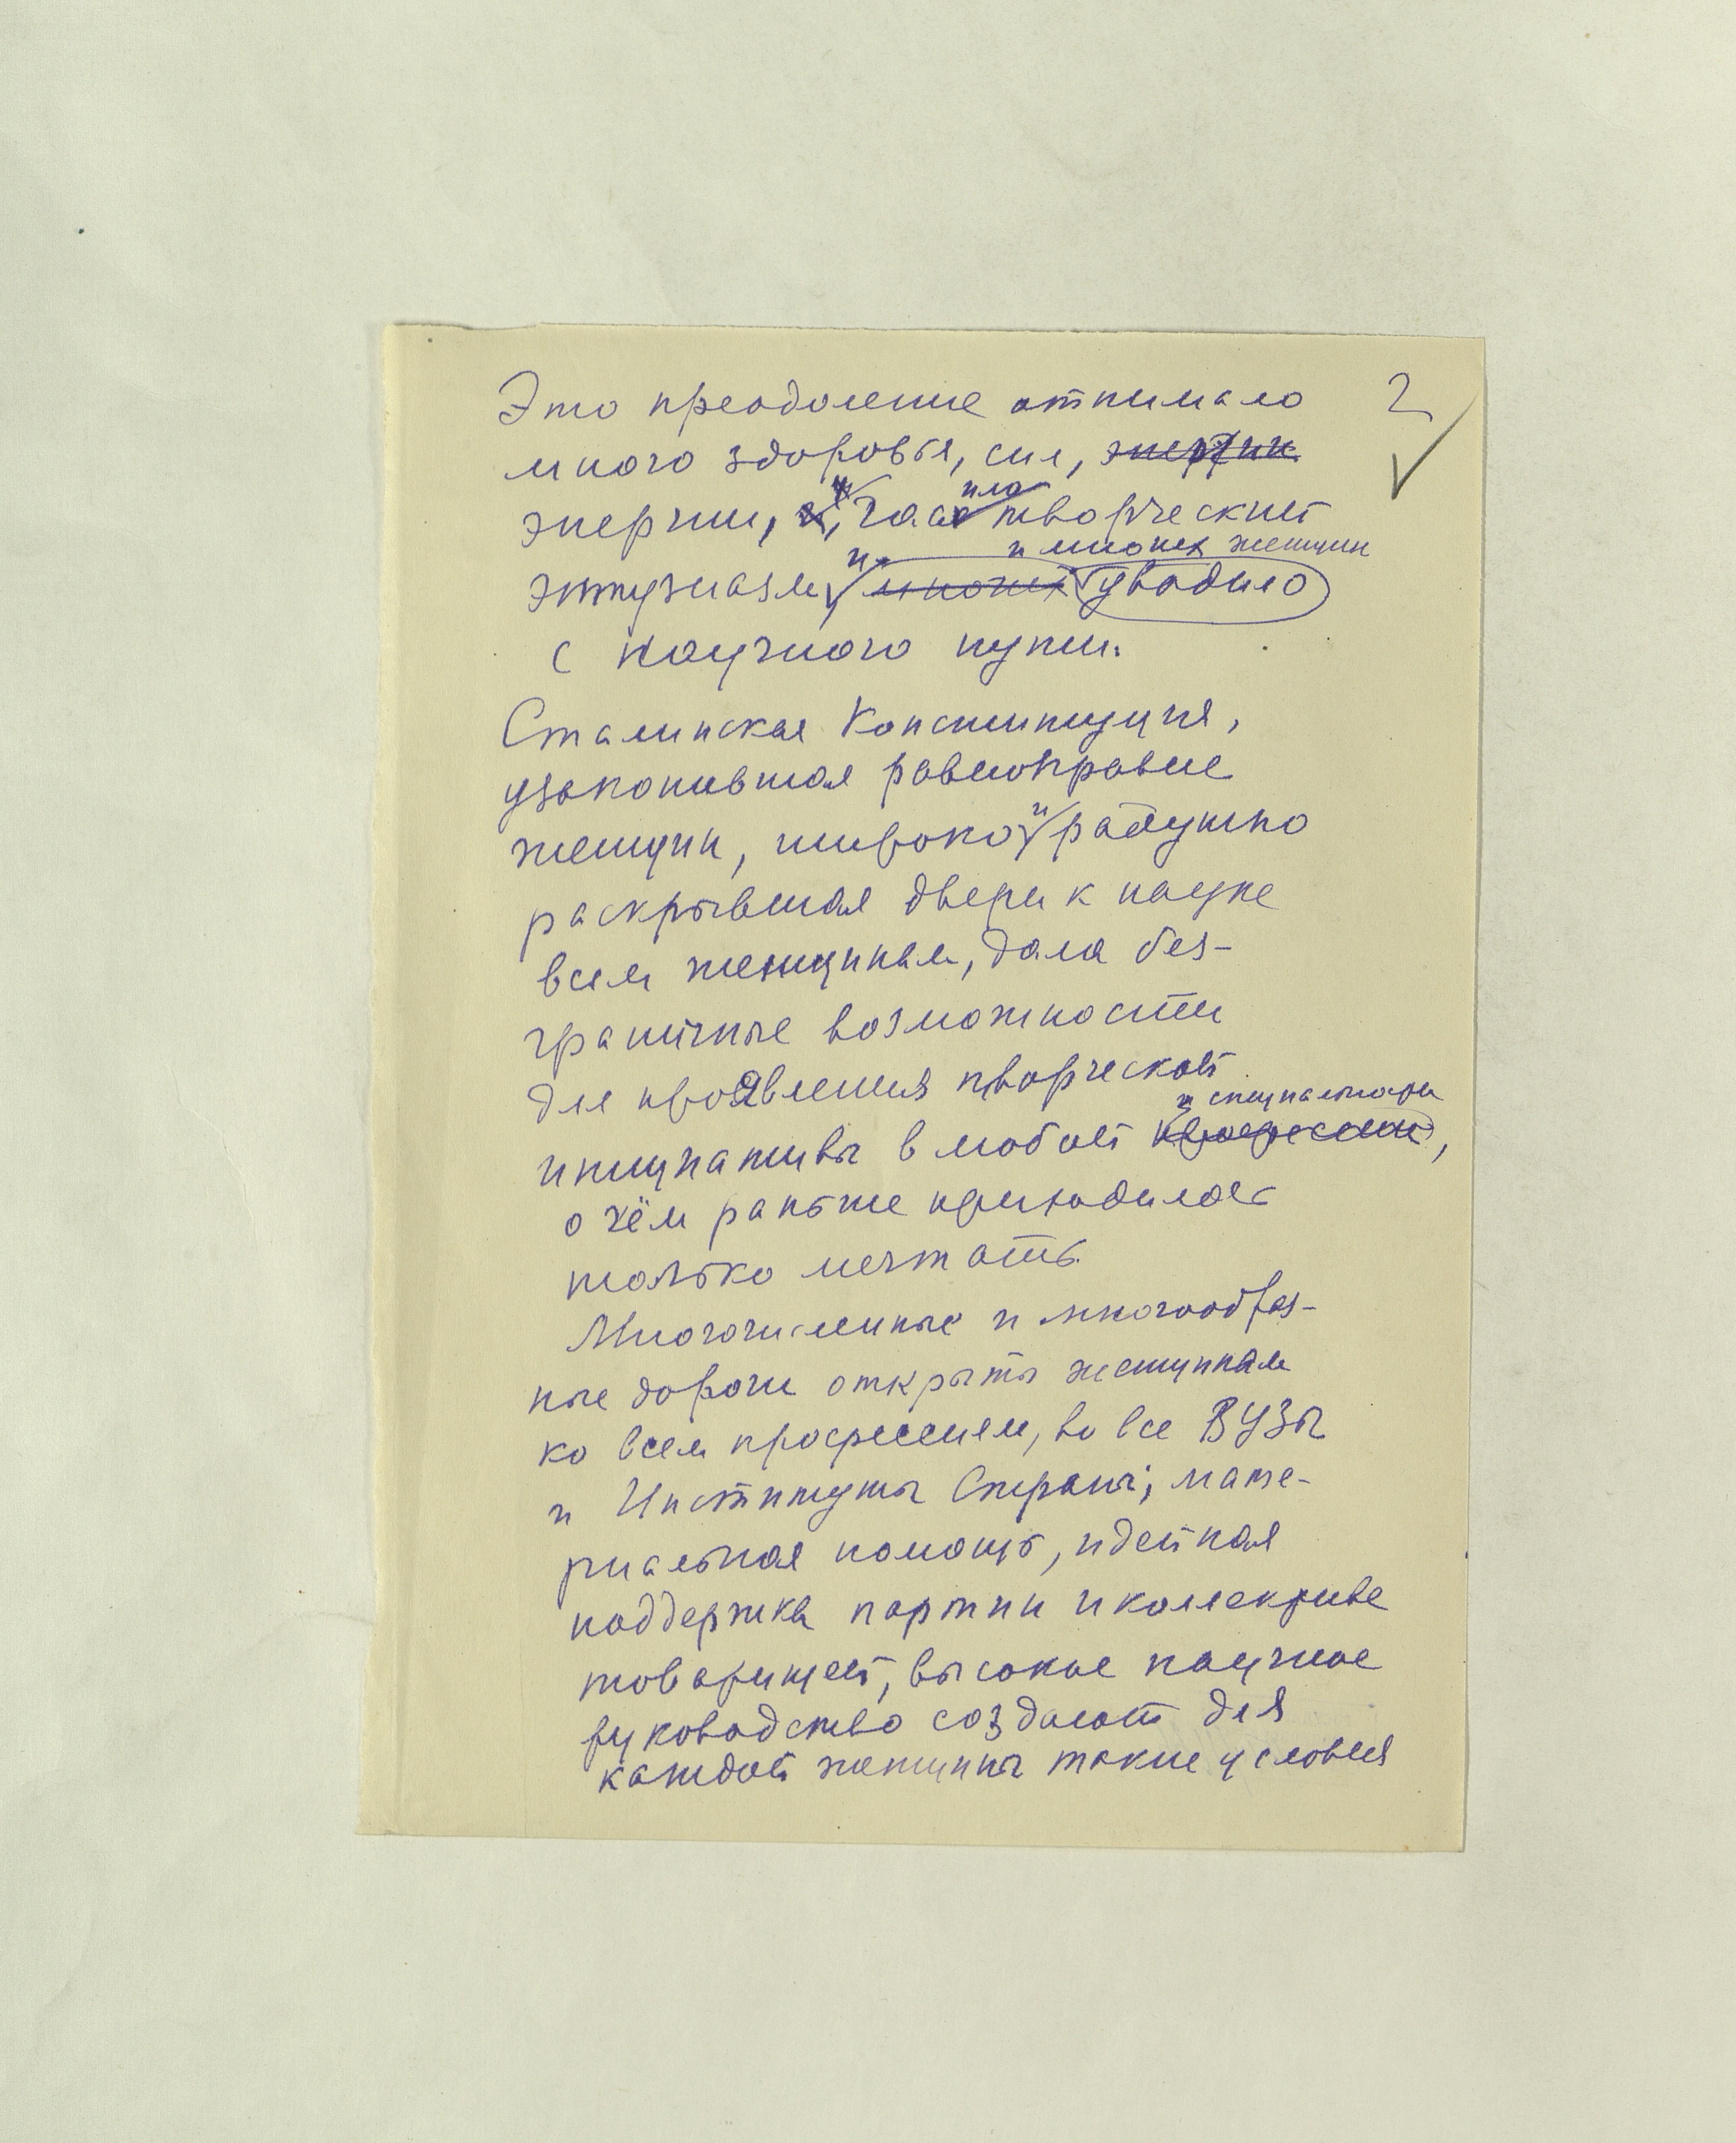 Это преодоление отнимало 2
много здоровья, сил, энергии
энергии, и гасило творческий
и многих женщин
энтузиазм и многих уводило
с научного пути.
Сталинская Конституция,
узаконившая равноправие
женщин, широко и радушно
раскрывшая двери к науке
всем женщинам, дала без-
граничные возможности
для проявления творческой
специальности
инициативы в любой профессии,
о чём раньше приходилось
только мечтать.
Многочисленные и многообраз-
ные дороги открыты женщинам
ко всем профессиям, во все ВУЗы
и Институты Страны; мате-
риальная помощь, идейная
поддержка партии и коллектива
товарищей, высокое научное
руководство создают для
каждой женщины такие условия